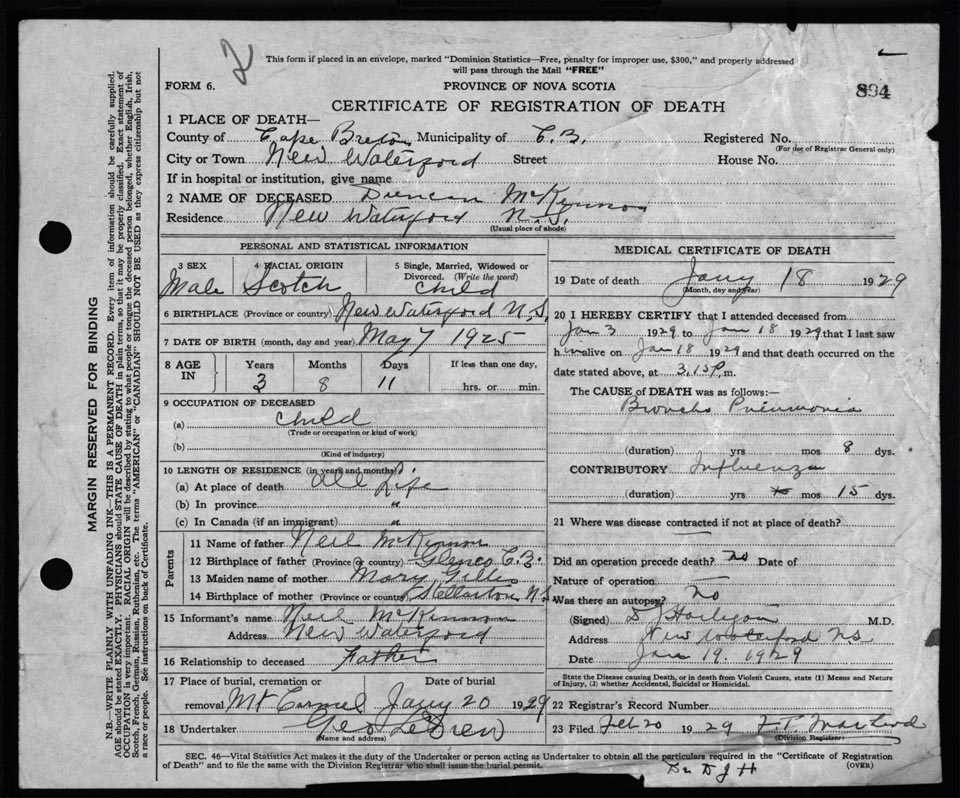 2
This form if placed in an envelope, marked "Dominion Statistics—Free, penalty for improper use, $300," and properly addressed
will pass through the Mail "FREE"
FORM 6.
PROVINCE OF NOVA SCOTIA
894
CERTIFICATE OF REGISTRATION OF DEATH
1 PLACE OF DEATH—
County of Cape Breton Municipality of C.B. Registered No.
(For use of Registrar General only)
City or Town New Waterford Street House No.
If in hospital or institution, give name
2 NAME OF DECEASED Duncan McKinnon
Residence New Waterford N.S.
(Usual place of abode)
PERSONAL AND STATISTICAL INFORMATION
3 SEX 4 RACIAL ORIGIN 5 Single, Married, Widowed or Divorced. (Write the word)
Male Scotch Child
6 BIRTHPLACE (Province or country) New Waterford N.S.
7 DATE OF BIRTH (month, day and year) May 7 1925
8 AGE IN Years Months Days If less than one day,
3 8 11 hrs. or min.
9 OCCUPATION OF DECEASED
(a) Child
(Trade or occupation or kind of work)
(b)
(Kind of industry)
10 LENGTH OF RESIDENCE (in years and months):
(a) At place of death all Life
(b) In province "
(c) In Canada (if an immigrant) "
Parents
11 Name of father Neil McKinnon
12 Birthplace of father (Province or country) Glenco C.B.
13 Maiden name of mother Mary Gillis
14 Birthplace of mother (Province or country) Stellarton N.S.
15 Informant's name Neil McKinnon
Address New Waterford
16 Relationship to deceased Father
17 Place of burial, cremation or removal Date of burial
Mt Carmel Jany 20 1929
18 Undertaker Geo
(Name and address)
MEDICAL CERTIFICATE OF DEATH
19 Date of death Jany 18 1929
(Month, day and year)
20 I HEREBY CERTIFY that I attended deceased from
Jan 3 1929 to Jan 18 1929 that I last saw
h im alive on Jan 18 1929 and that death occurred on
date stated above, at 3.15 P. m.
The CAUSE of DEATH was as follows:—
Broncho Pneumonia
(duration) yrs mos 8 dys.
CONTRIBUTORY Influenza
(duration) yrs mos 15 dys.
21 Where was disease contracted if not at place of death?
Did an operation precede death? no Date of
Nature of operation —
Was there an autopsy? no
(Signed) D J Hartigan M.D.
Address New Waterford NS
Date Jan 19. 1929
State the Disease causing Death, or in death from Violent Causes, state (1) Means and Nature of Injury, (2) whether Accidental, Suicidal or Homicidal.
22 Registrar's Record Number
23 Filed Feb 20 1929
(Division Registrar)
SEC. 46—Vital Statistics Act makes it the duty of the Undertaker or person acting as Undertaker to obtain all the particulars required in the "Certificate of Registration
of Death" and to file the same with the Division Registrar who shall issue the burial permit. (OVER)
Dr D J H
MARGIN RESERVED FOR BINDING
N.B.—WRITE PLAINLY WITH UNFADING INK—THIS IS A PERMANENT RECORD. Every item of information should be carefully supplied.
AGE should be stated EXACTLY. PHYSICIANS should STATE CAUSE OF DEATH in plain terms, so that it may be properly classified. Exact statement of
OCCUPATION is very important. RACIAL ORIGIN will be described by stating to what people or tongue the deceased person belonged, whether English, Irish,
Scotch, French, German, Russian, Ruthenian, etc. The terms "AMERICAN" or "CANADIAN" SHOULD NOT BE USED as they express citizenship but not
a race or people. See instructions on back of Certificate.